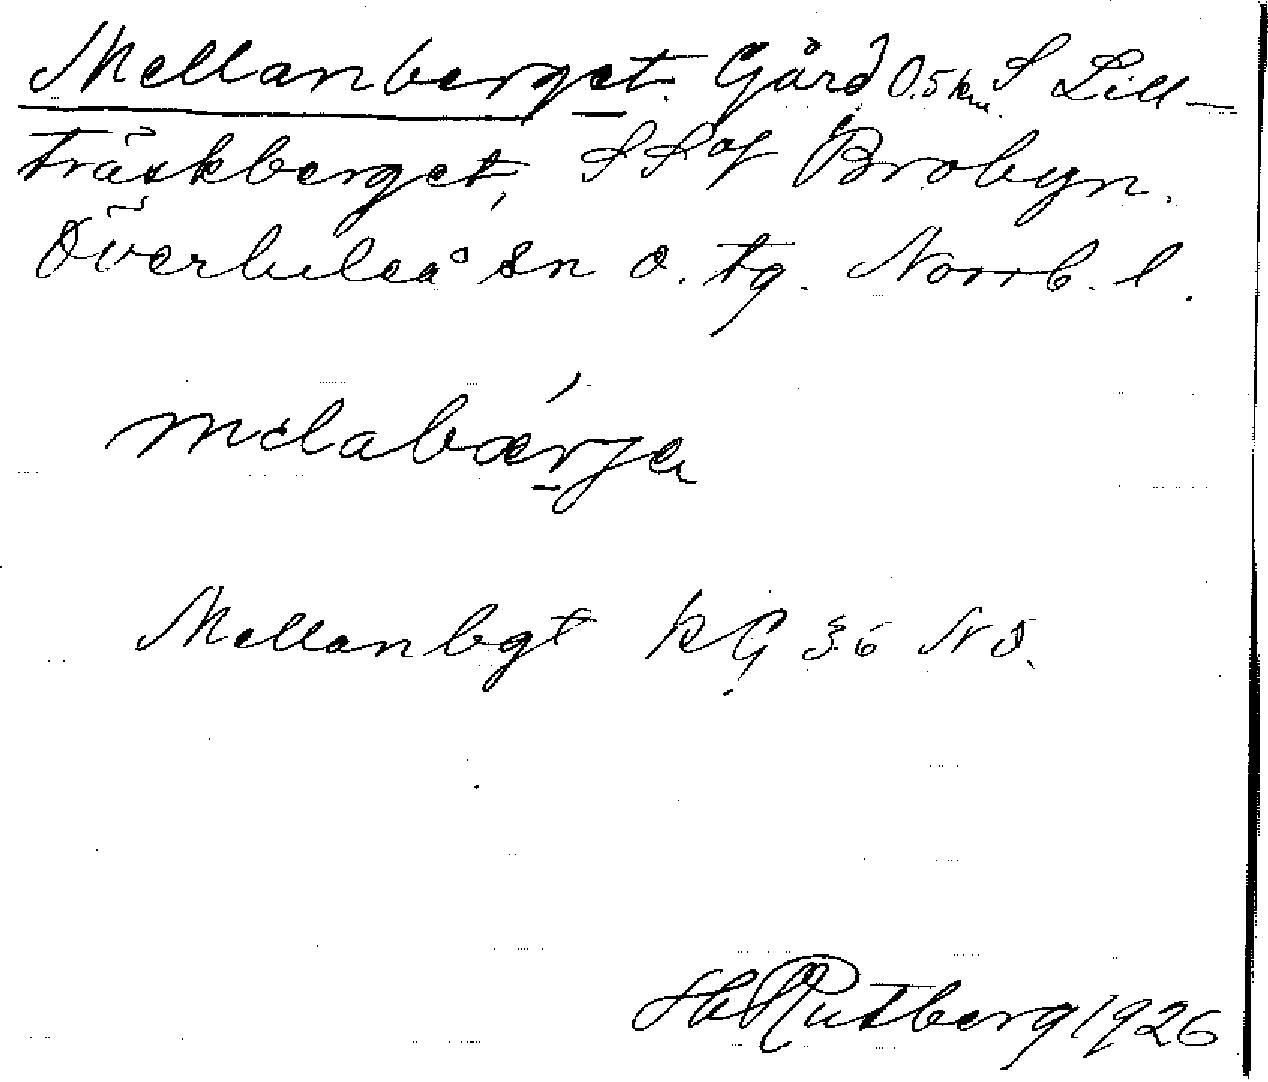 Mellanberget. Gård 0.5 km S Lill-
träskberget, SSof Brobyn.
Överluleå sn o. tg. Norrb. l.
melabærje
Mellanbgt KG 36 NO.
Hh Rutberg 1926